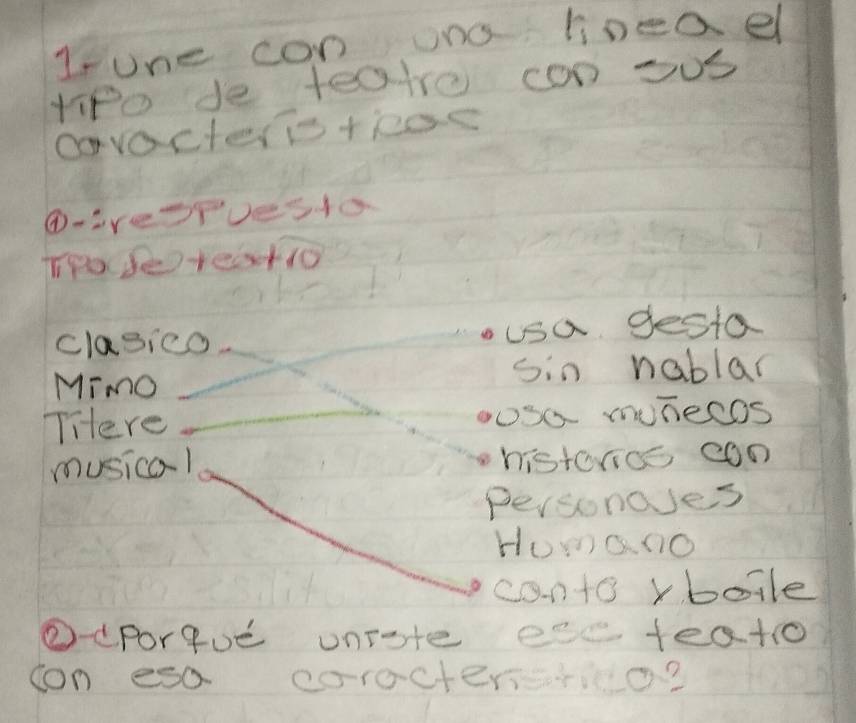 1- une con una linea el
tipo de teatro con sus
caracteristicas
①-: respuesta
Tipo de teatro
clasico
Mimo
Titere
musical
usa gesta
sin hablar
usa muñecos
historias con
personajes
Humano
canto y baile
②-¿Porqué uniste ese teatro
con esa caracteristica?